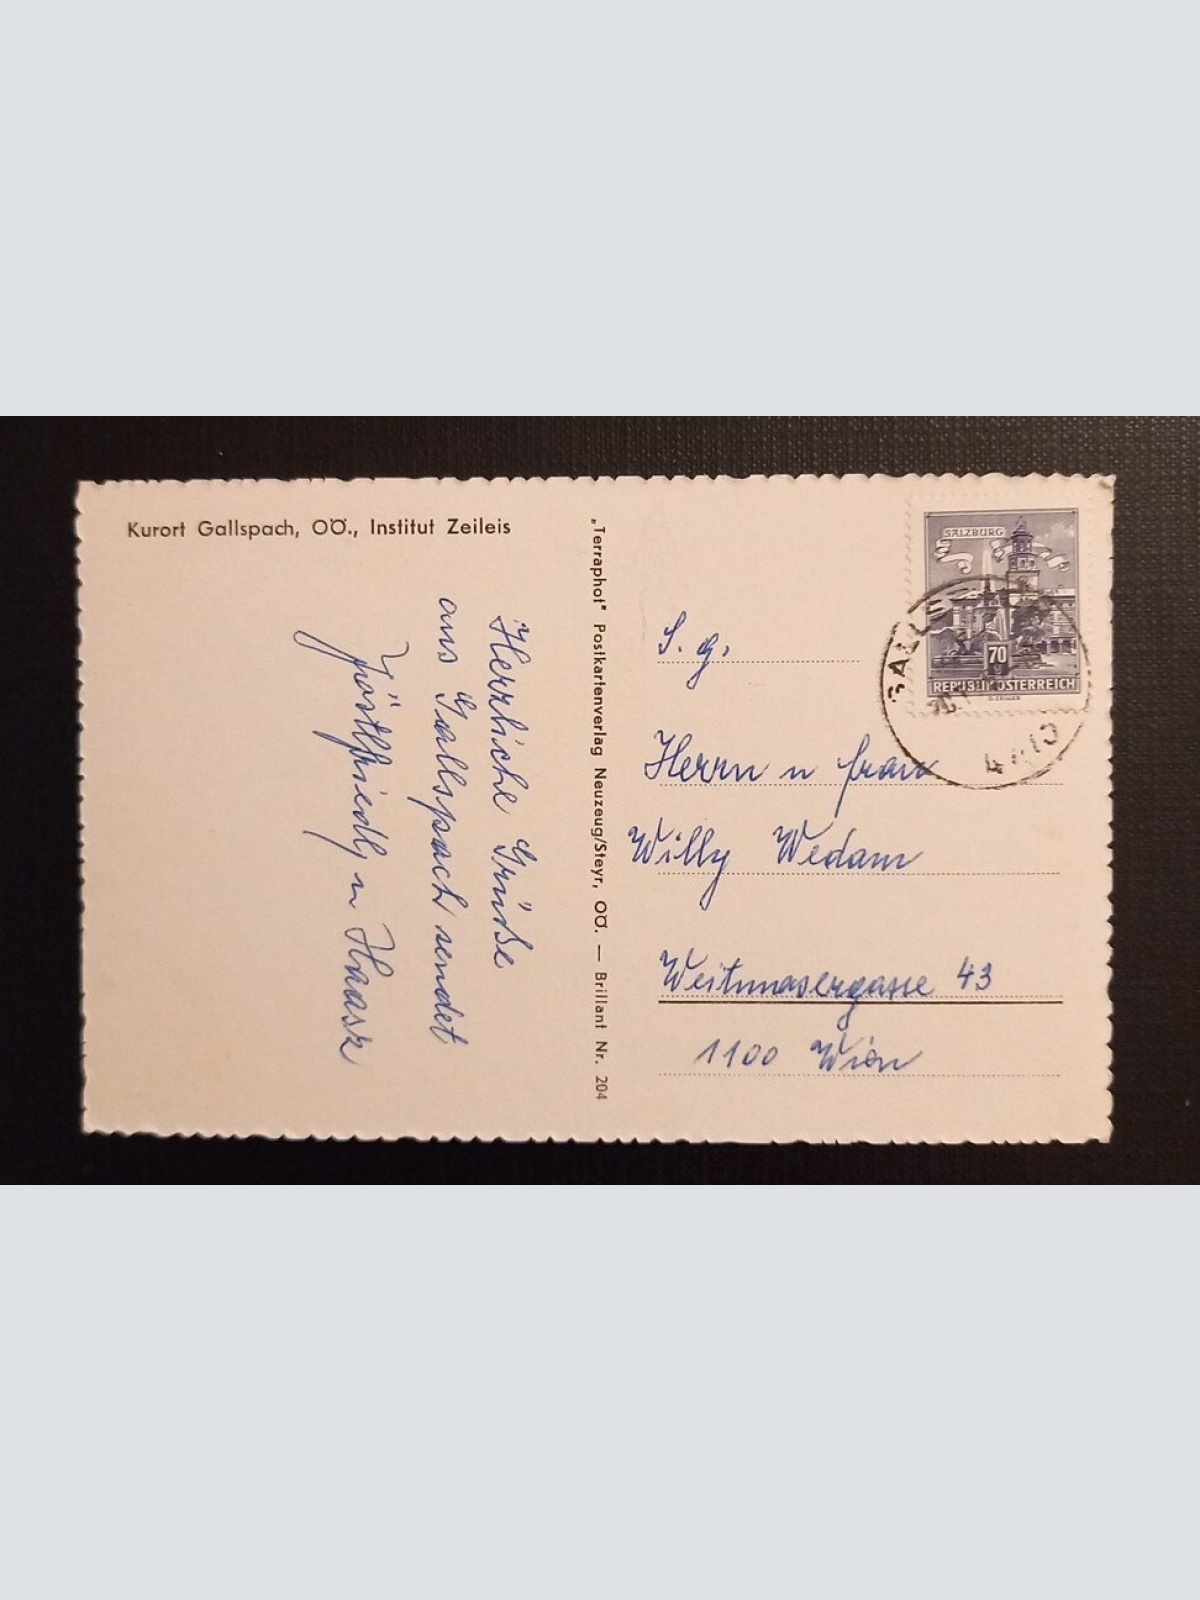 Kurort Gallspach, OÖ., Institut Zeileis
Herzliche Grüße
aus Gallspach sendet
u Haask
„Terraphot" Postkartenverlag Neuzeug/Steyr, OÖ. — Brillant Nr. 204
SALZBURG
70
REPUBLIK ÖSTERREICH
S. g.
Herrn u frau
Willy Wedam
Weitmosergasse 43
1100 Wien